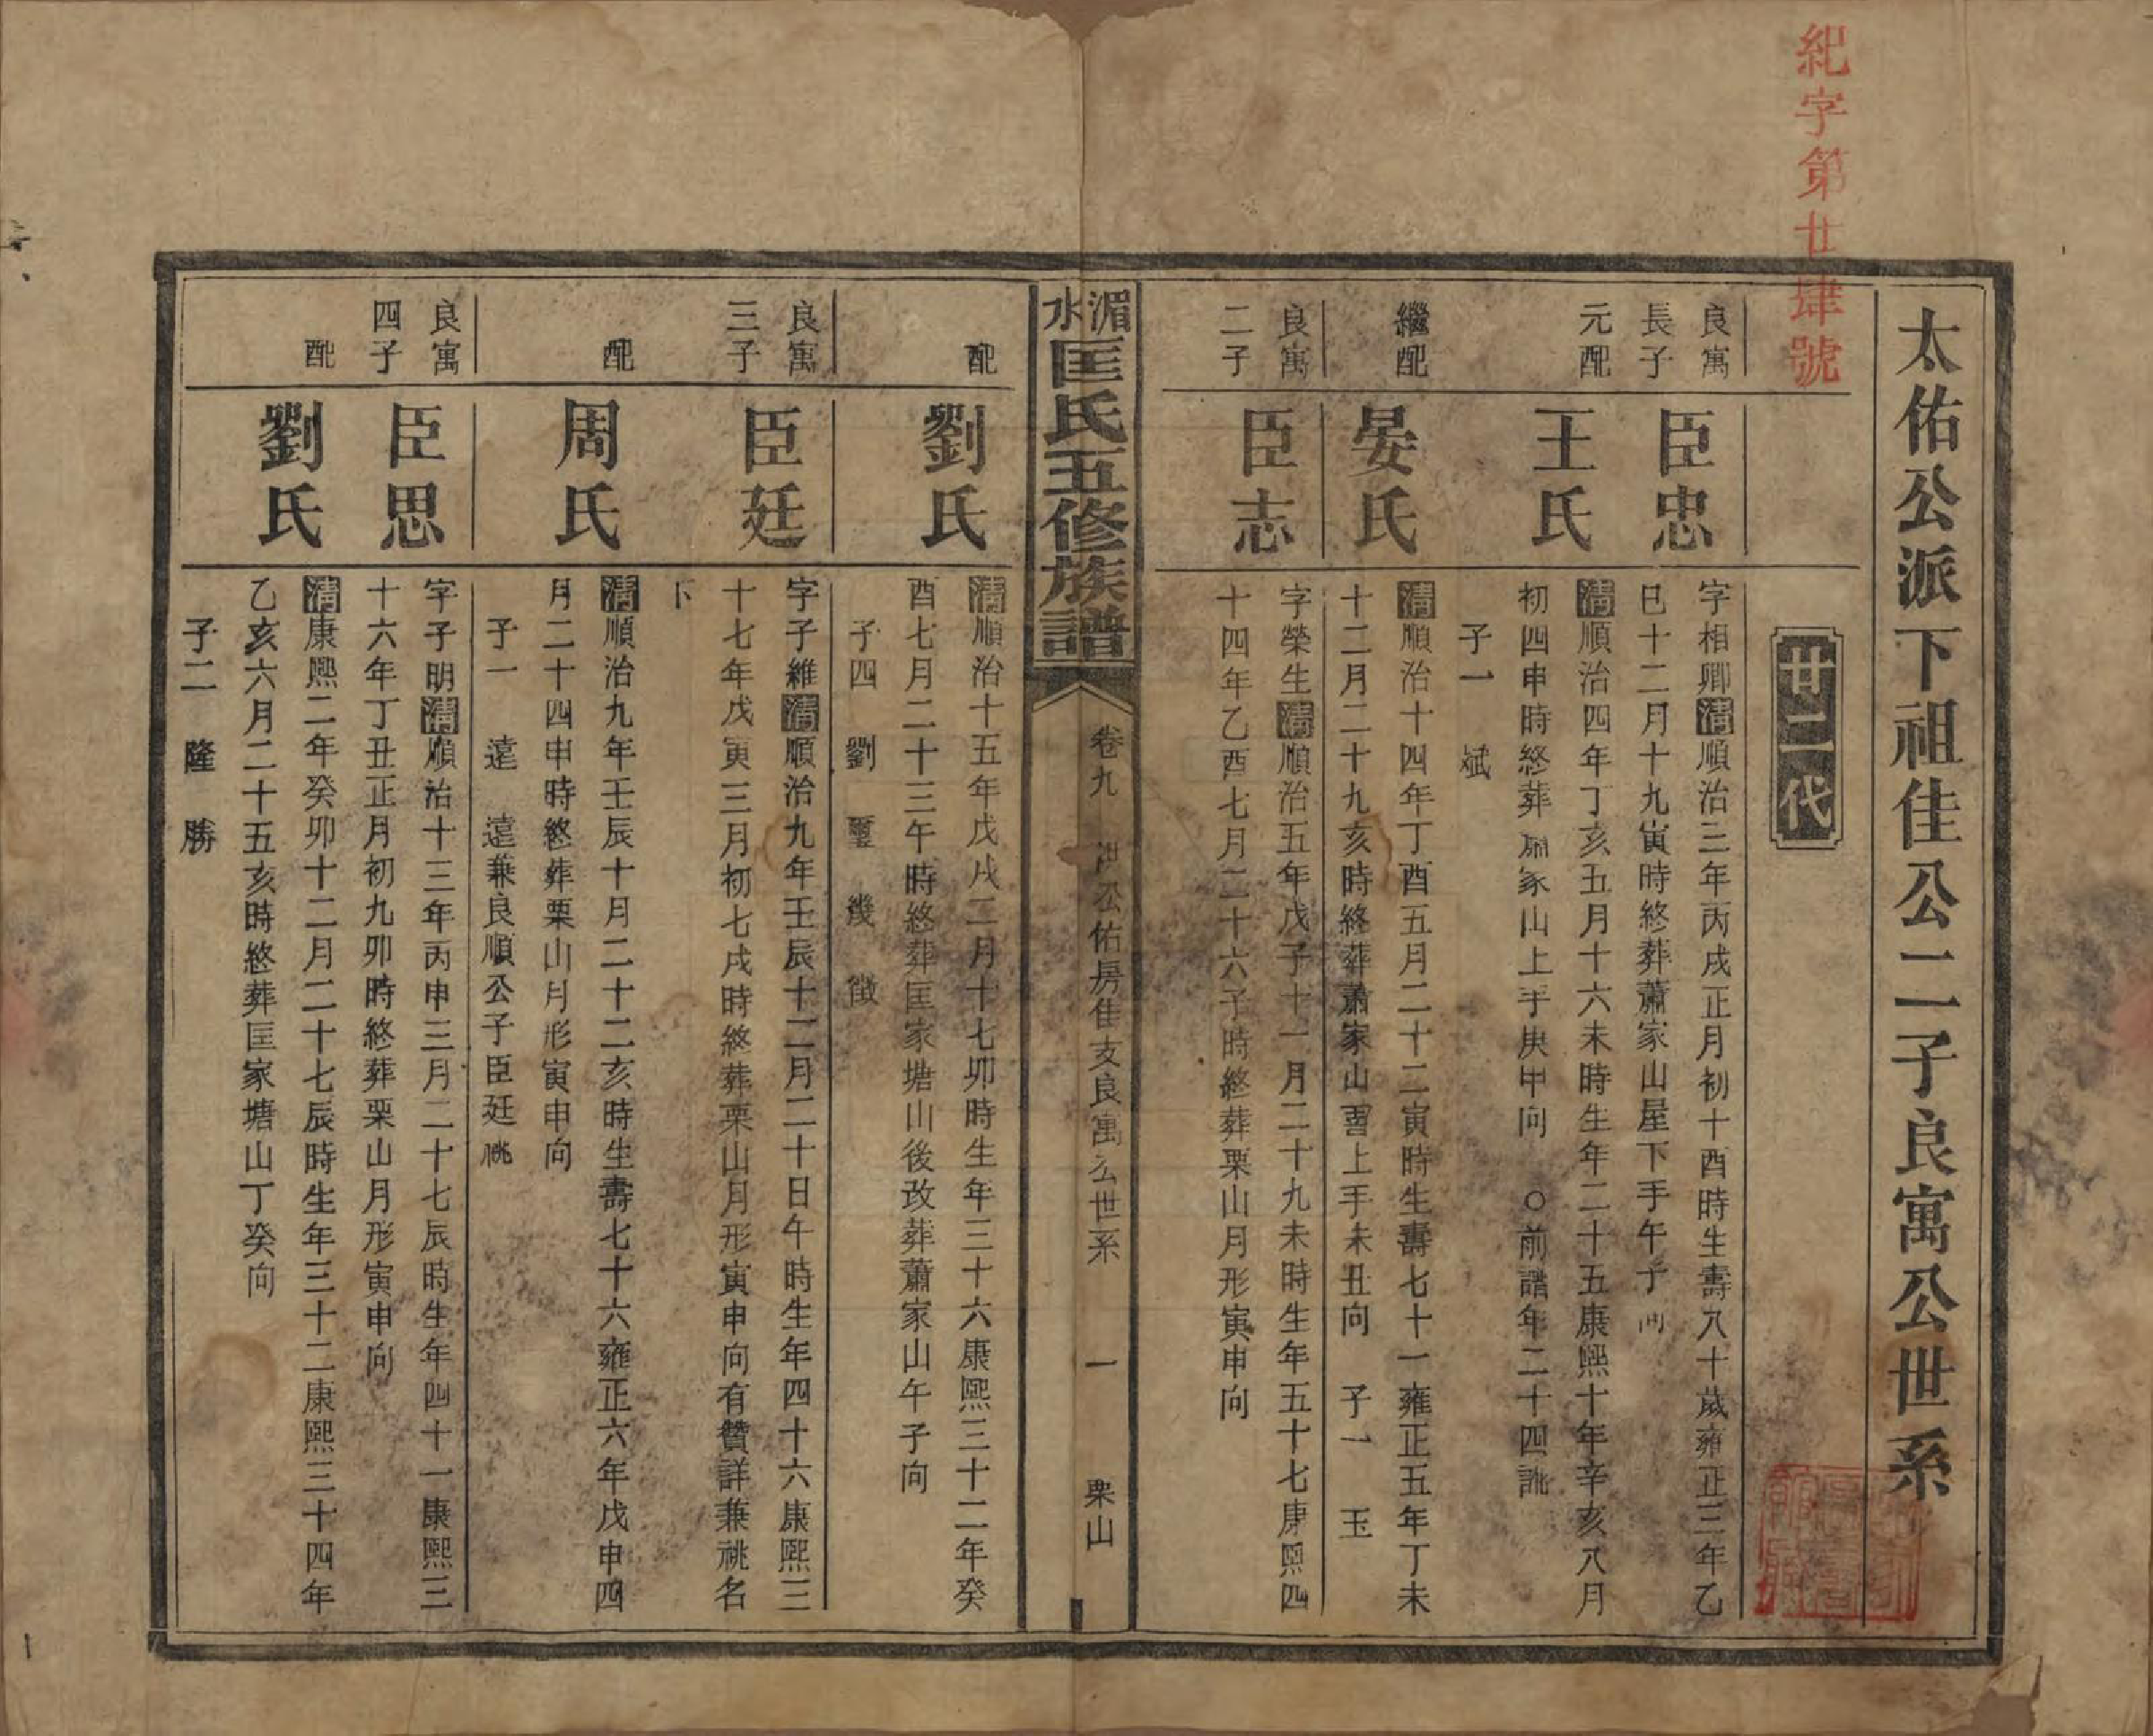 紀字第廿肆號
太佑公派下祖佳公二子良寓公世系
廿二代
良寓
長子
臣忠
字相卿清順治三年丙戌正月初十酉時生壽八十歲雍正三年乙
巳十二月十九寅時終葬蕭家山屋下手午子向
元配
王氏
清順治四年丁亥五月十六未時生年二十五康熙十年辛亥八月
初四申時終葬 家山上手庚甲向 ○前譜年二十四訛
子一 斌
繼配
晏氏
清順治十四年丁酉五月二十二寅時生壽七十一雍正五年丁未
十二月二十九亥時終葬蕭家山 上手未丑向 子一 玉
良寓
二子
臣志
字榮生清順治五年戊子十一月二十九未時生年五十七康熙四
十四年乙酉七月二十六子時終葬栗山月形寅申向
湄水匡氏五修族譜
卷九 公佑房佳支良寓公世系 一 栗山
配
劉氏
清順治十五年戊戌二月十七卯時生年三十六康熙三十二年癸
酉七月二十三午時終葬匡家塘山後改葬蕭家山午子向
子四 劉 璽 幾 徵
良寓
三子
臣廷
字子維清順治九年壬辰十二月二十日午時生年四十六康熙三
十七年戊寅三月初七戌時終葬栗山月形寅申向有贊詳兼祧名
下
配
周氏
清順治九年壬辰十月二十二亥時生壽七十六雍正六年戊申四
月二十四申時終葬栗山月形寅申向
子一 遠 遠兼良順公子臣廷祧
良寓
四子
臣思
字子明清順治十三年丙申三月二十七辰時生年四十一康熙三
十六年丁丑正月初九卯時終葬栗山月形寅申向
配
劉氏
清康熙二年癸卯十二月二十七辰時生年三十二康熙三十四年
乙亥六月二十五亥時終葬匡家塘山丁癸向
子二 隆 勝